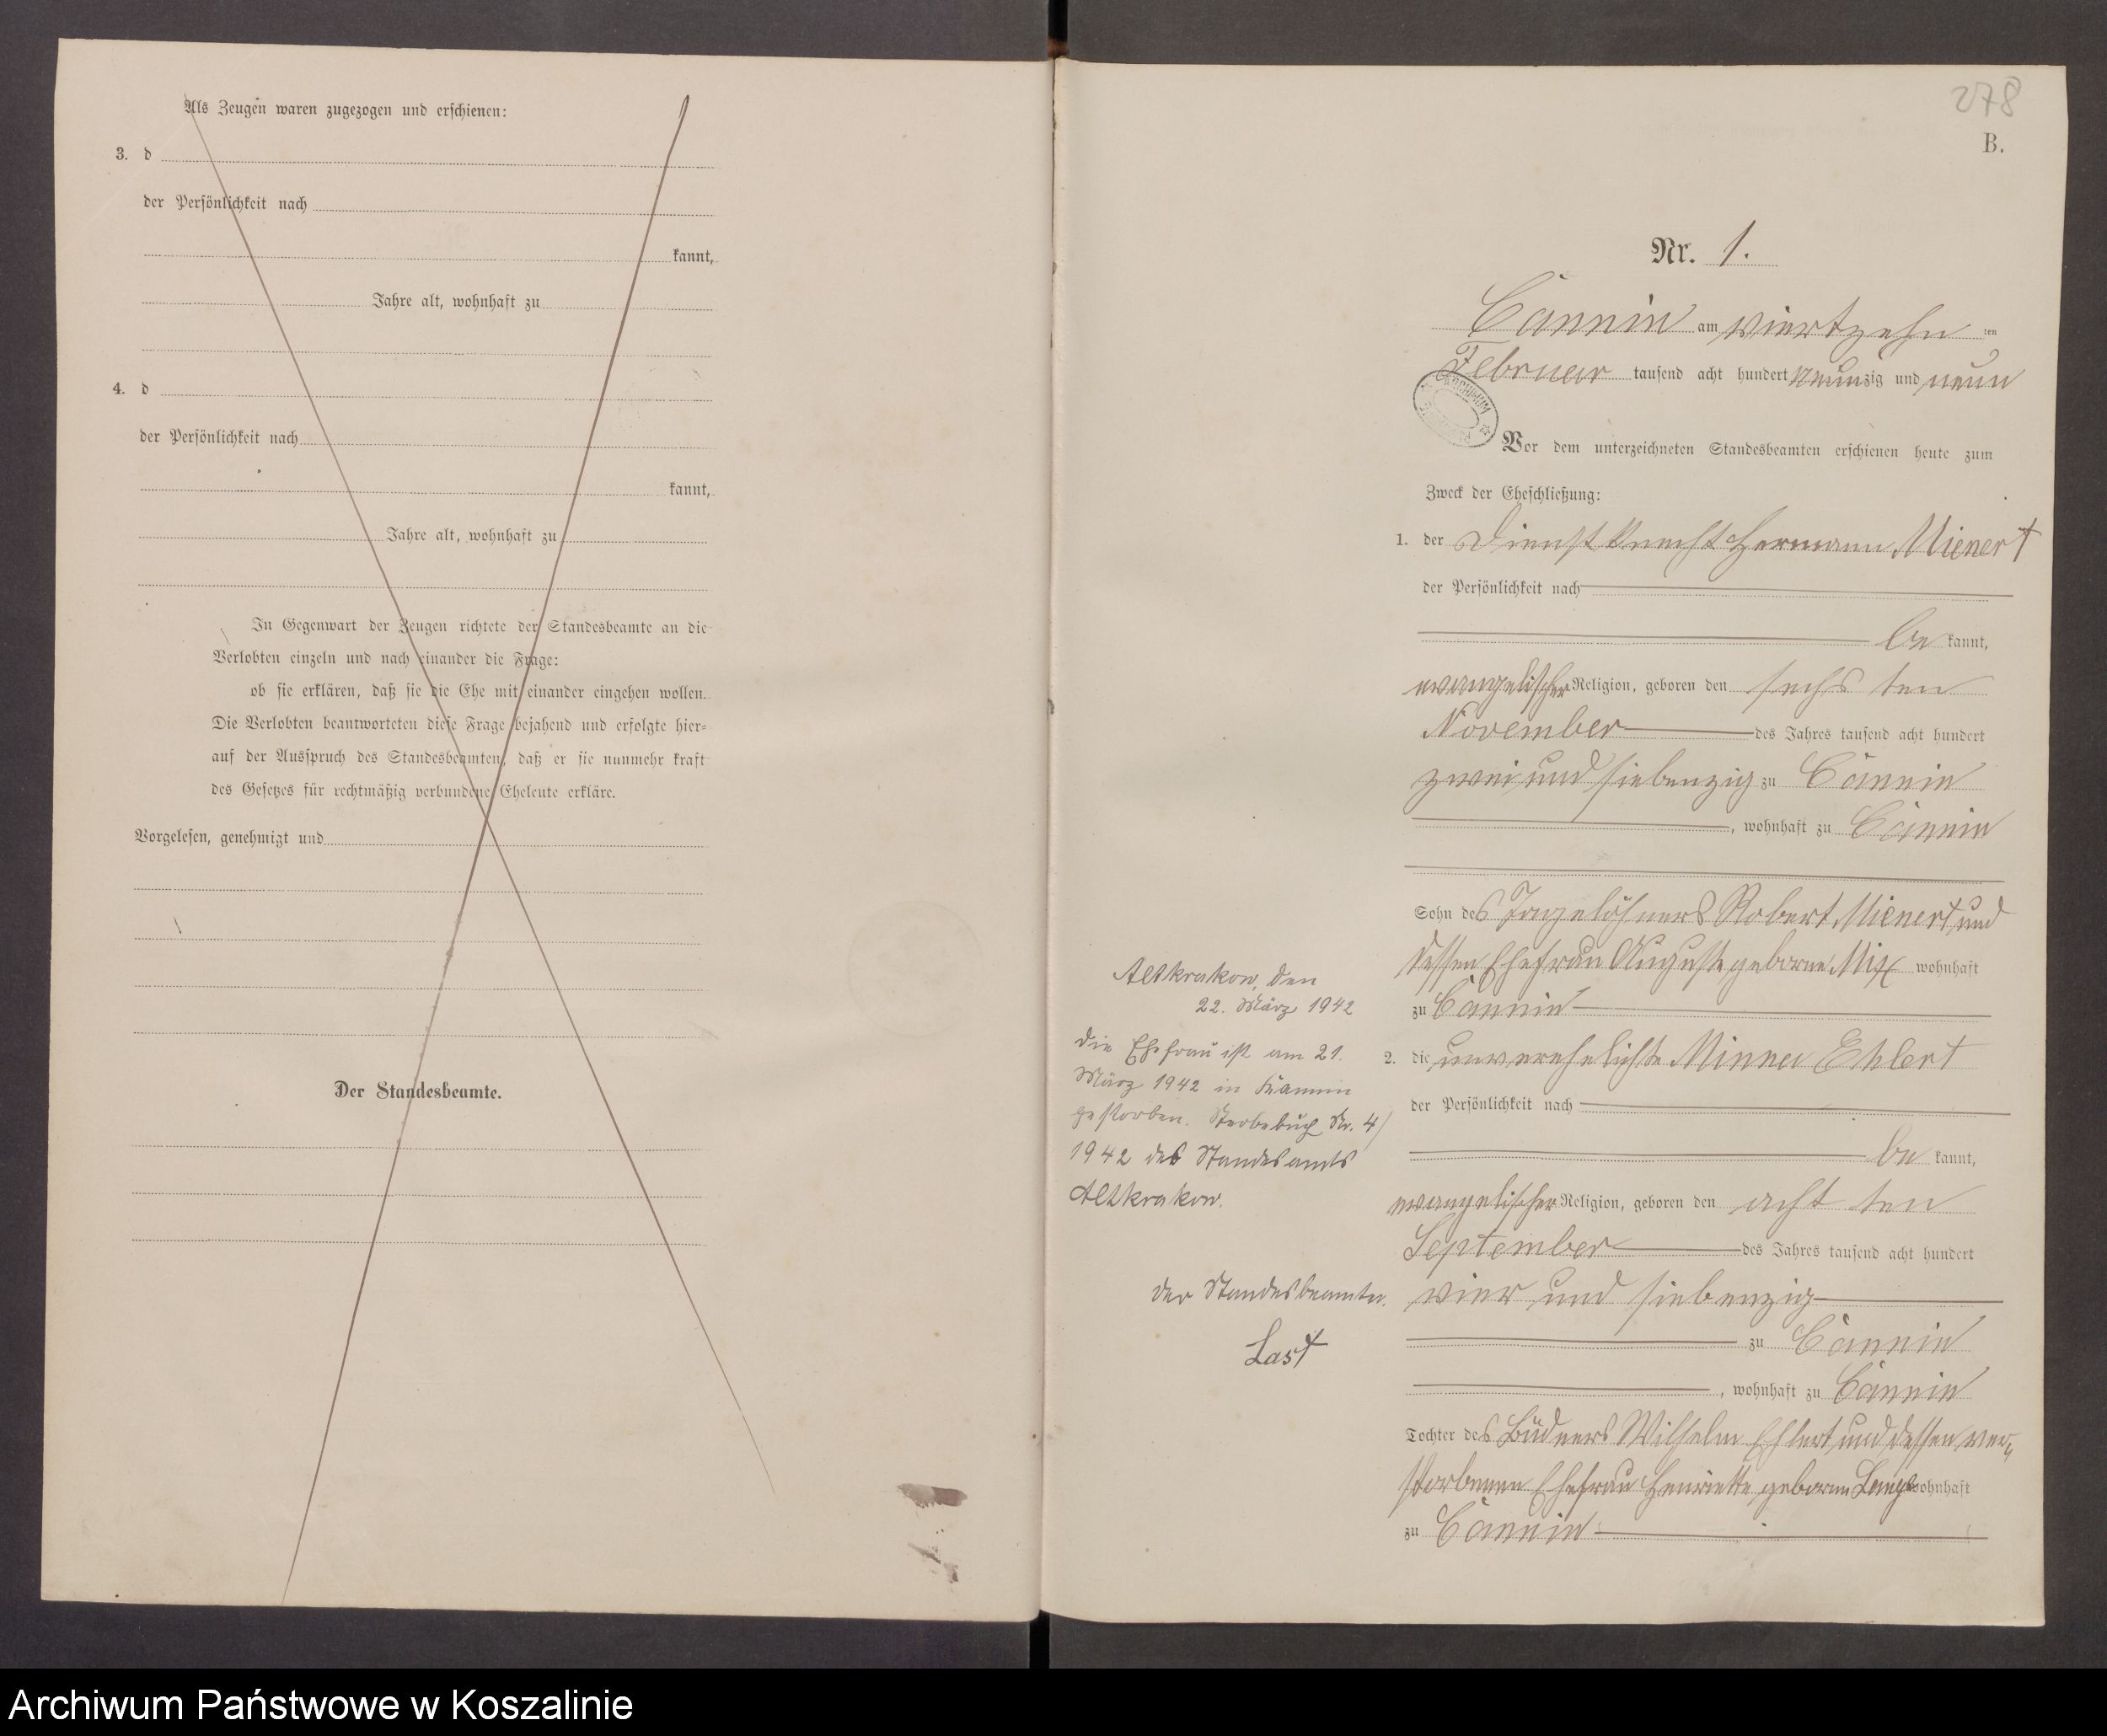 Als Zeugen waren zugezogen und erschienen:
3. d
der Persönlichkeit nach
kannt,
Jahre alt, wohnhaft zu
4. d
der Persönlichkeit nach
kannt,
Jahre alt, wohnhaft zu
In Gegenwart der Zeugen richtete der Standesbeamte an die
Verlobten einzeln und nach einander die Frage:
ob sie erklären, daß sie die Ehe mit einander eingehen wollen.
Die Verlobten beantworteten diese Frage bejahend und erfolgte hier-
auf der Ausspruch des Standesbeamten, daß er sie nunmehr kraft
des Gesetzes für rechtmäßig verbundene Eheleute erkläre.
Vorgelesen, genehmigt und
Der Standesbeamte.
278
B.
Nr. 1.
Cannin am viertzehn ten
Februar tausend acht hundert neunzig und neun
Vor dem unterzeichneten Standesbeamten erschienen heute zum
Zweck der Eheschließung:
1. der Dienstknecht Hermann Mienert
der Persönlichkeit nach
be kannt,
evangelischer Religion, geboren den sechs ten
November des Jahres tausend acht hundert
zwei und siebenzig zu Cannin
, wohnhaft zu Cannin
Sohn des Tagelöhners Robert Mienert und
dessen Ehefrau Auguste geborne Mix wohnhaft
zu Cannin
2. die unverehelichte Minna Ehlert
der Persönlichkeit nach
be kannt,
evangelischer Religion, geboren den acht ten
September des Jahres tausend acht hundert
vier und siebenzig
zu Cannin
, wohnhaft zu Cannin
Tochter des Büdners Wilhelm Ehlert und dessen ver-
storbenen Ehefrau Henriette geborne wohnhaft
zu Cannin
Altkrakow, den
22. März 1942
Die Ehefrau ist am 21.
März 1942 in Kannin
gestorben. Sterbebuch Nr. 4/
1942 des Standesamts
Altkrakow.
Der Standesbeamte.
Last
Archiwum Państwowe w Koszalinie